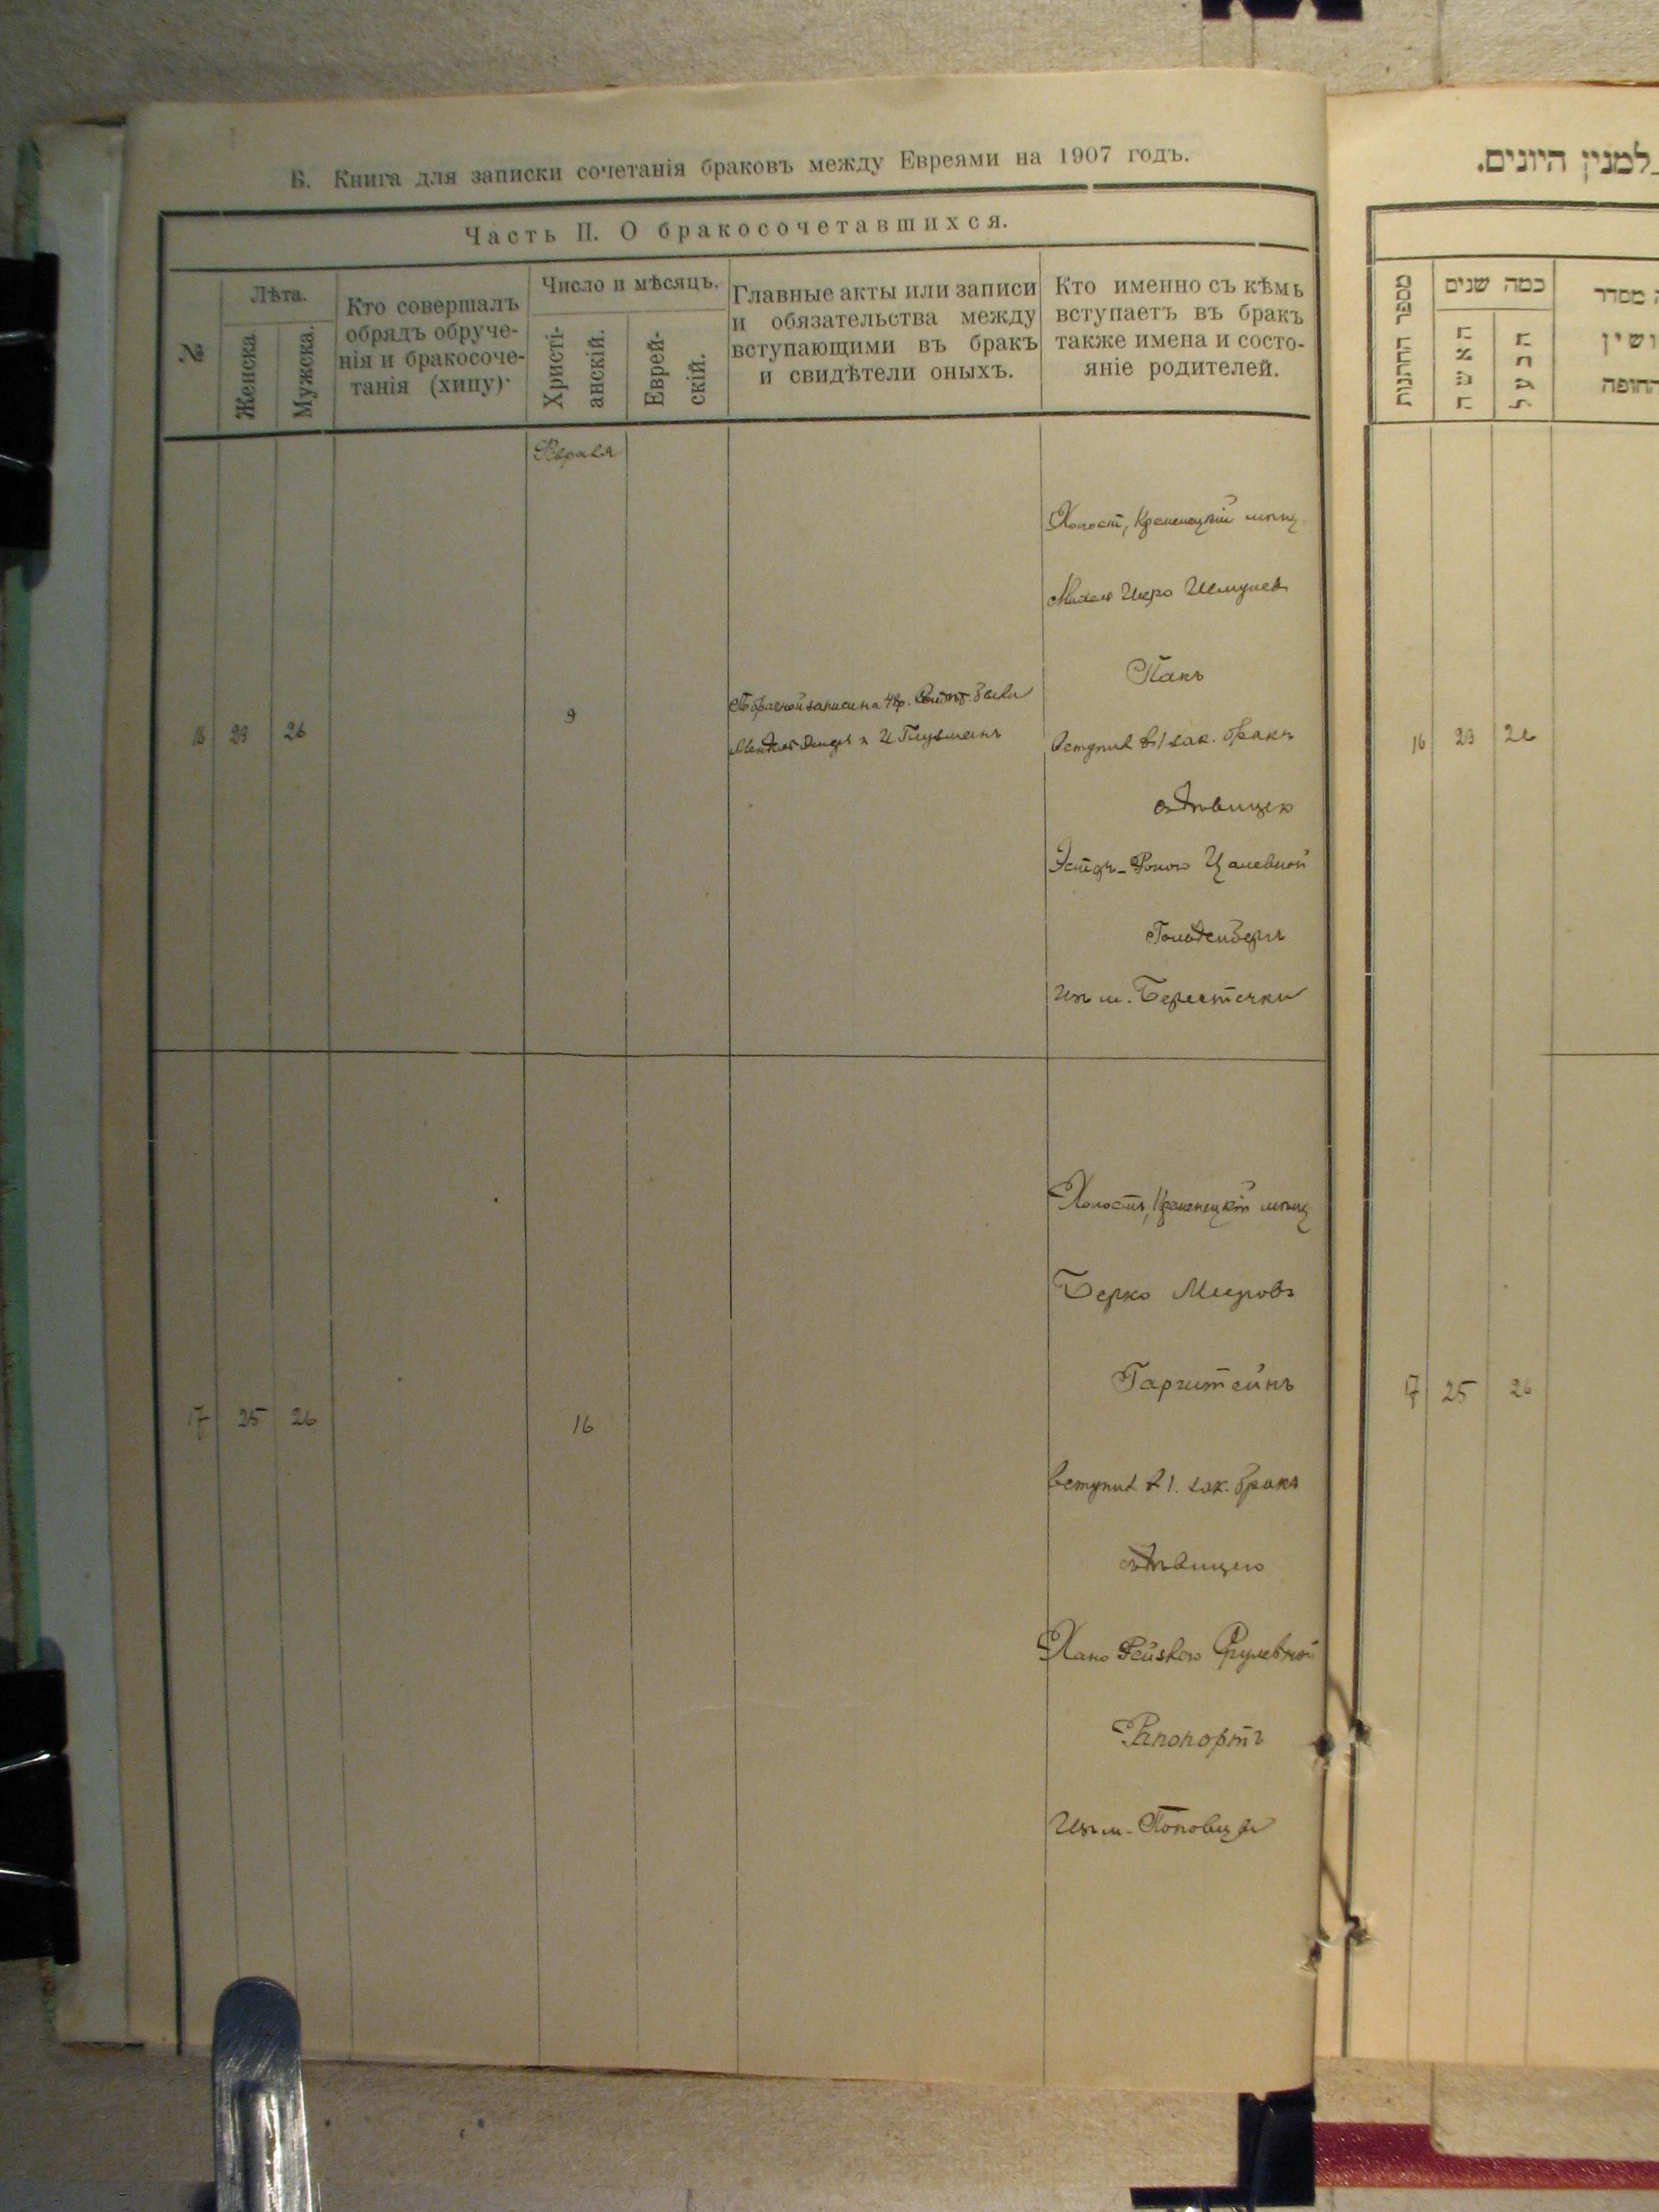 Б. Книга для записки сочетанія браковъ между Евреями на 1907 годъ.
Часть II. О бракосочетавшихся.
№
Лѣта.
Женска.
Мужска.
Кто совершалъ
обрядъ обруче-
нія и бракосоче-
танія (хипу)
Число и мѣсяцъ.
Христі-
анскій.
Еврей-
скій.
Главные акты или записи
и обязательства между
вступающими въ бракъ
и свидѣтели оныхъ.
Кто именно съ кѣмъ
вступаетъ въ бракъ
также имена и состо-
яніе родителей.
Февраля
16 23 26
9
По брачной записи на 48р. были
и И Глузманъ
Холост, Кременецкій мѣщ
Шмулев
Пакъ
вступил въ 1 зак. бракъ
съ дѣвицею
Цалевной
Гольденбергъ
Изъ м. Берестечки
17 25 26
16
Холостъ, Кременецкій мѣщ
Берко Мееровъ
Гарштейнъ
вступил въ 1. зак. бракъ
съ дѣвицею
Хано Рейзею
Рапопортъ
Изъ м. Поповцы
למנין היונים.
מספר החתנות
כמה שנים
האשה
הבעל
מסדר
ושין
החופה
16 23 26
17 25 26